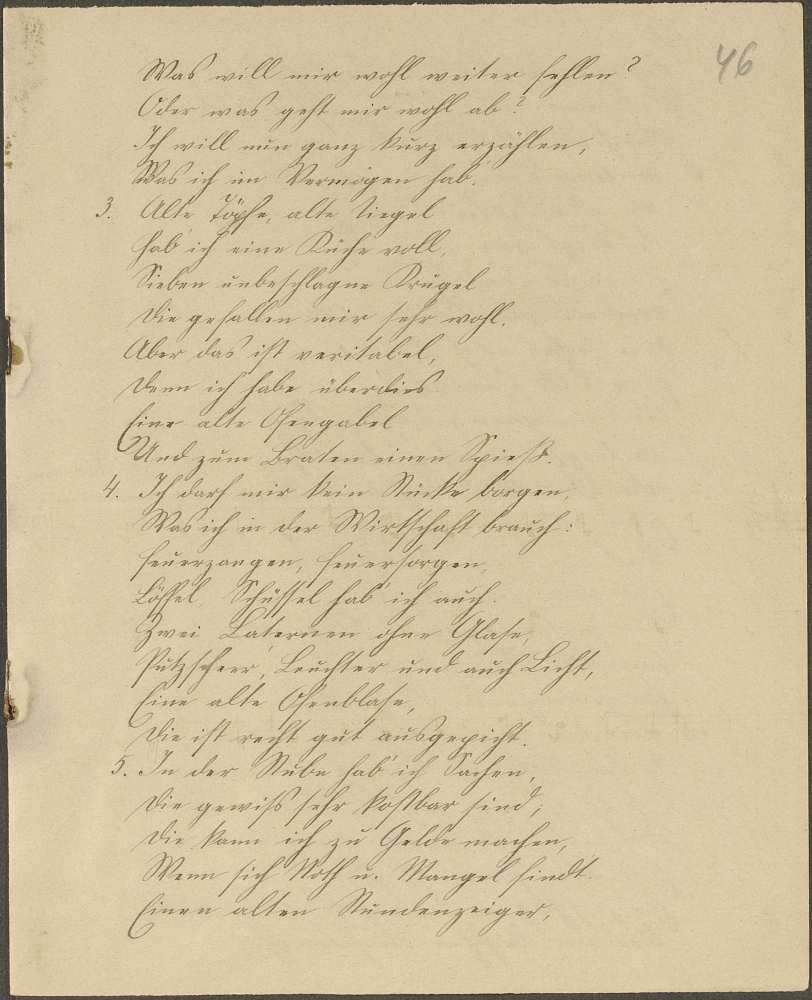 46
Was will mir wohl weiter fehlen?
Oder was geht mir wohl ab?
Ich will nun ganz kurz erzählen,
Was ich im Vermögen hab.
3. Alte Töpfe, alte Tiegel
Hab' ich eine Küche voll,
Sieben unbeschlagne Krügel
Die gefallen mir sehr wohl.
Aber das ist veritabel,
Denn ich habe überdies
Eine alte Ofengabel
Und zum Braten einen Spieß.
4. Ich darf mir kein Stücke borgen,
Was ich in der Wirtschaft brauch:
Feuerzangen, Feuersorgen,
Löffel, Schüssel hab' ich auch.
Zwei Laternen ohne Glase,
Putzscheer, Leuchter und auch Licht,
Eine alte Ofenblase,
Die ist recht gut ausgepicht.
5. In der Stube hab' ich Sachen,
Die gewiss sehr kostbar sind,
Die kann ich zu Gelde machen,
Wenn sich Noth u. Mangel findt.
Einen alten Stundenzeiger,